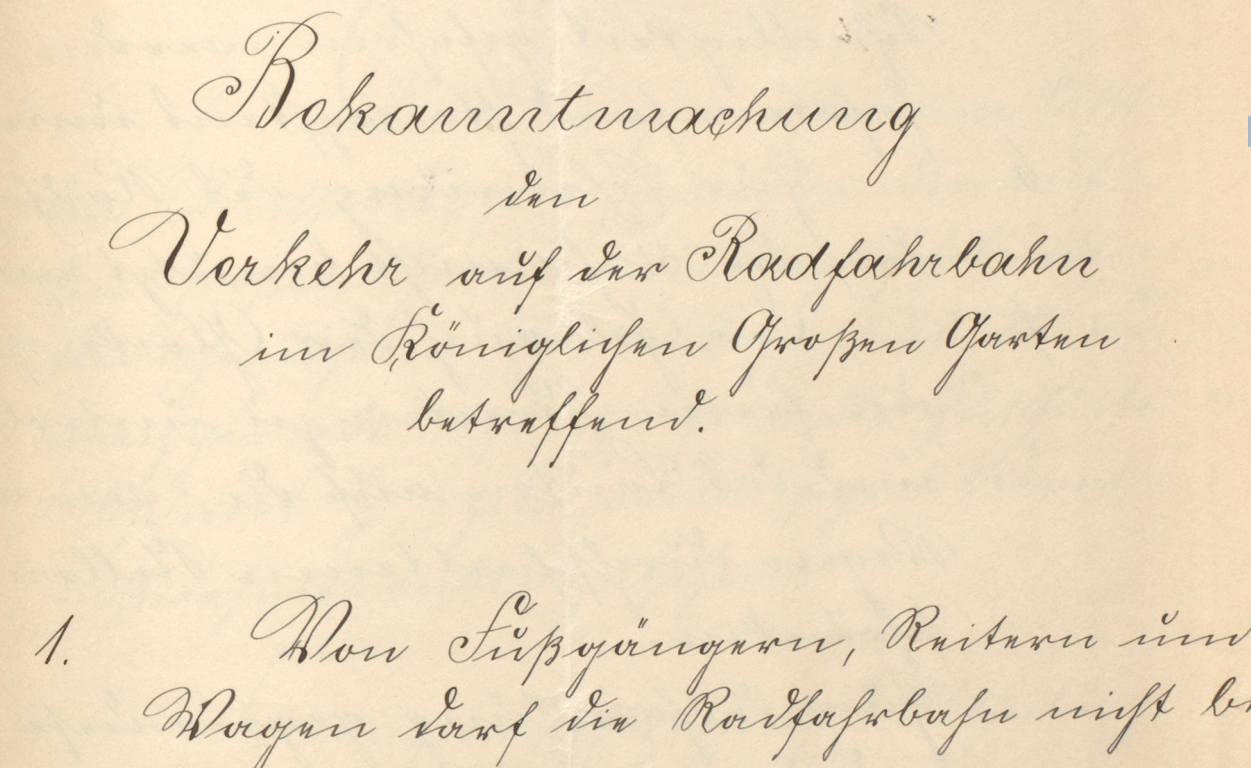 Bekanntmachung
den
Verkehr auf der Radfahrbahn
im Königlichen Großen Garten
betreffend.
1. Von Fußgängern, Reitern und
Wagen darf die Radfahrbahn nicht be